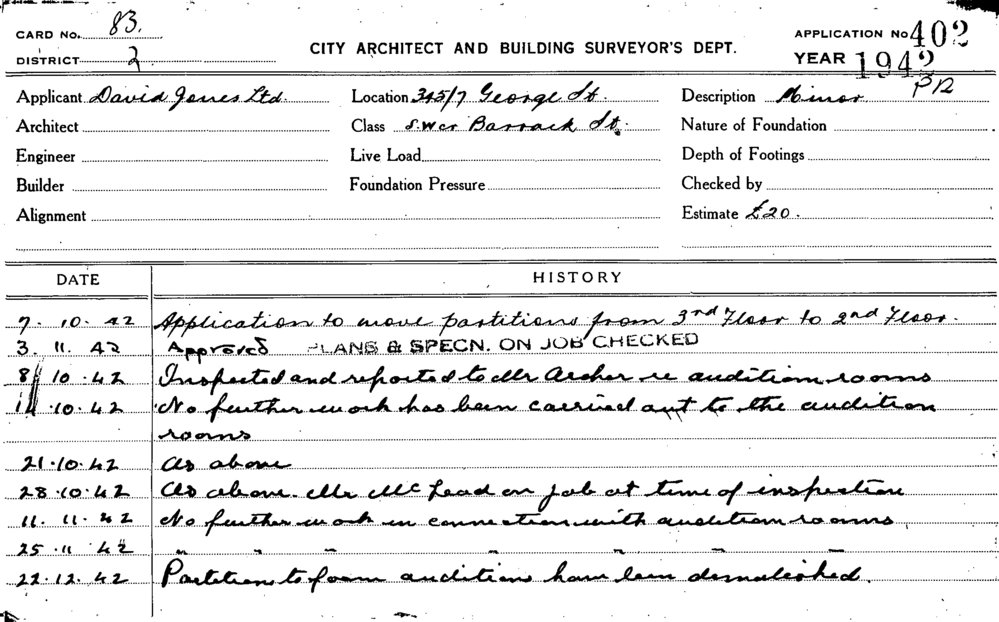 CARD No. 83.
DISTRICT 2
CITY ARCHITECT AND BUILDING SURVEYOR'S DEPT.
APPLICATION No 402
YEAR 1942
Applicant David Jones Ltd. Location 345/7 George St. Description Minor
Architect Class S.W cr Barrack St. Nature of Foundation
Engineer Live Load Depth of Footings
Builder Foundation Pressure Checked by
Alignment Estimate £20.
DATE HISTORY
7. 10. 42 Application to move partitions from 3rd Floor to 2nd Floor.
3. 11. 42 Approved PLANS & SPECN. ON JOB CHECKED
8 10. 42 Inspected and reported to Mr Archer re audition rooms
14 10. 42 No further work has been carried out to the audition
rooms
21.10.42 As above
28.10.42 As above. Mr McLead on job at time of inspection
11. 11. 42 No further work in connection with audition rooms
25.11.42 " " " " " " "
22.12.42 Partitions to form audition have been demolished.